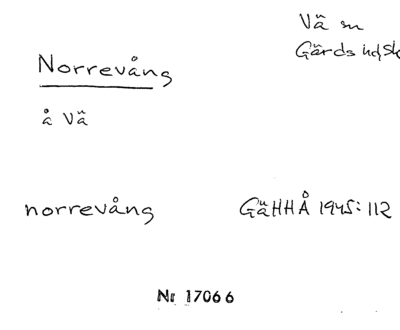 Vä sn
Gärds hdsk
Norrevång
å Vä
norrevång GäHHÅ 1945:112
Nr 17066